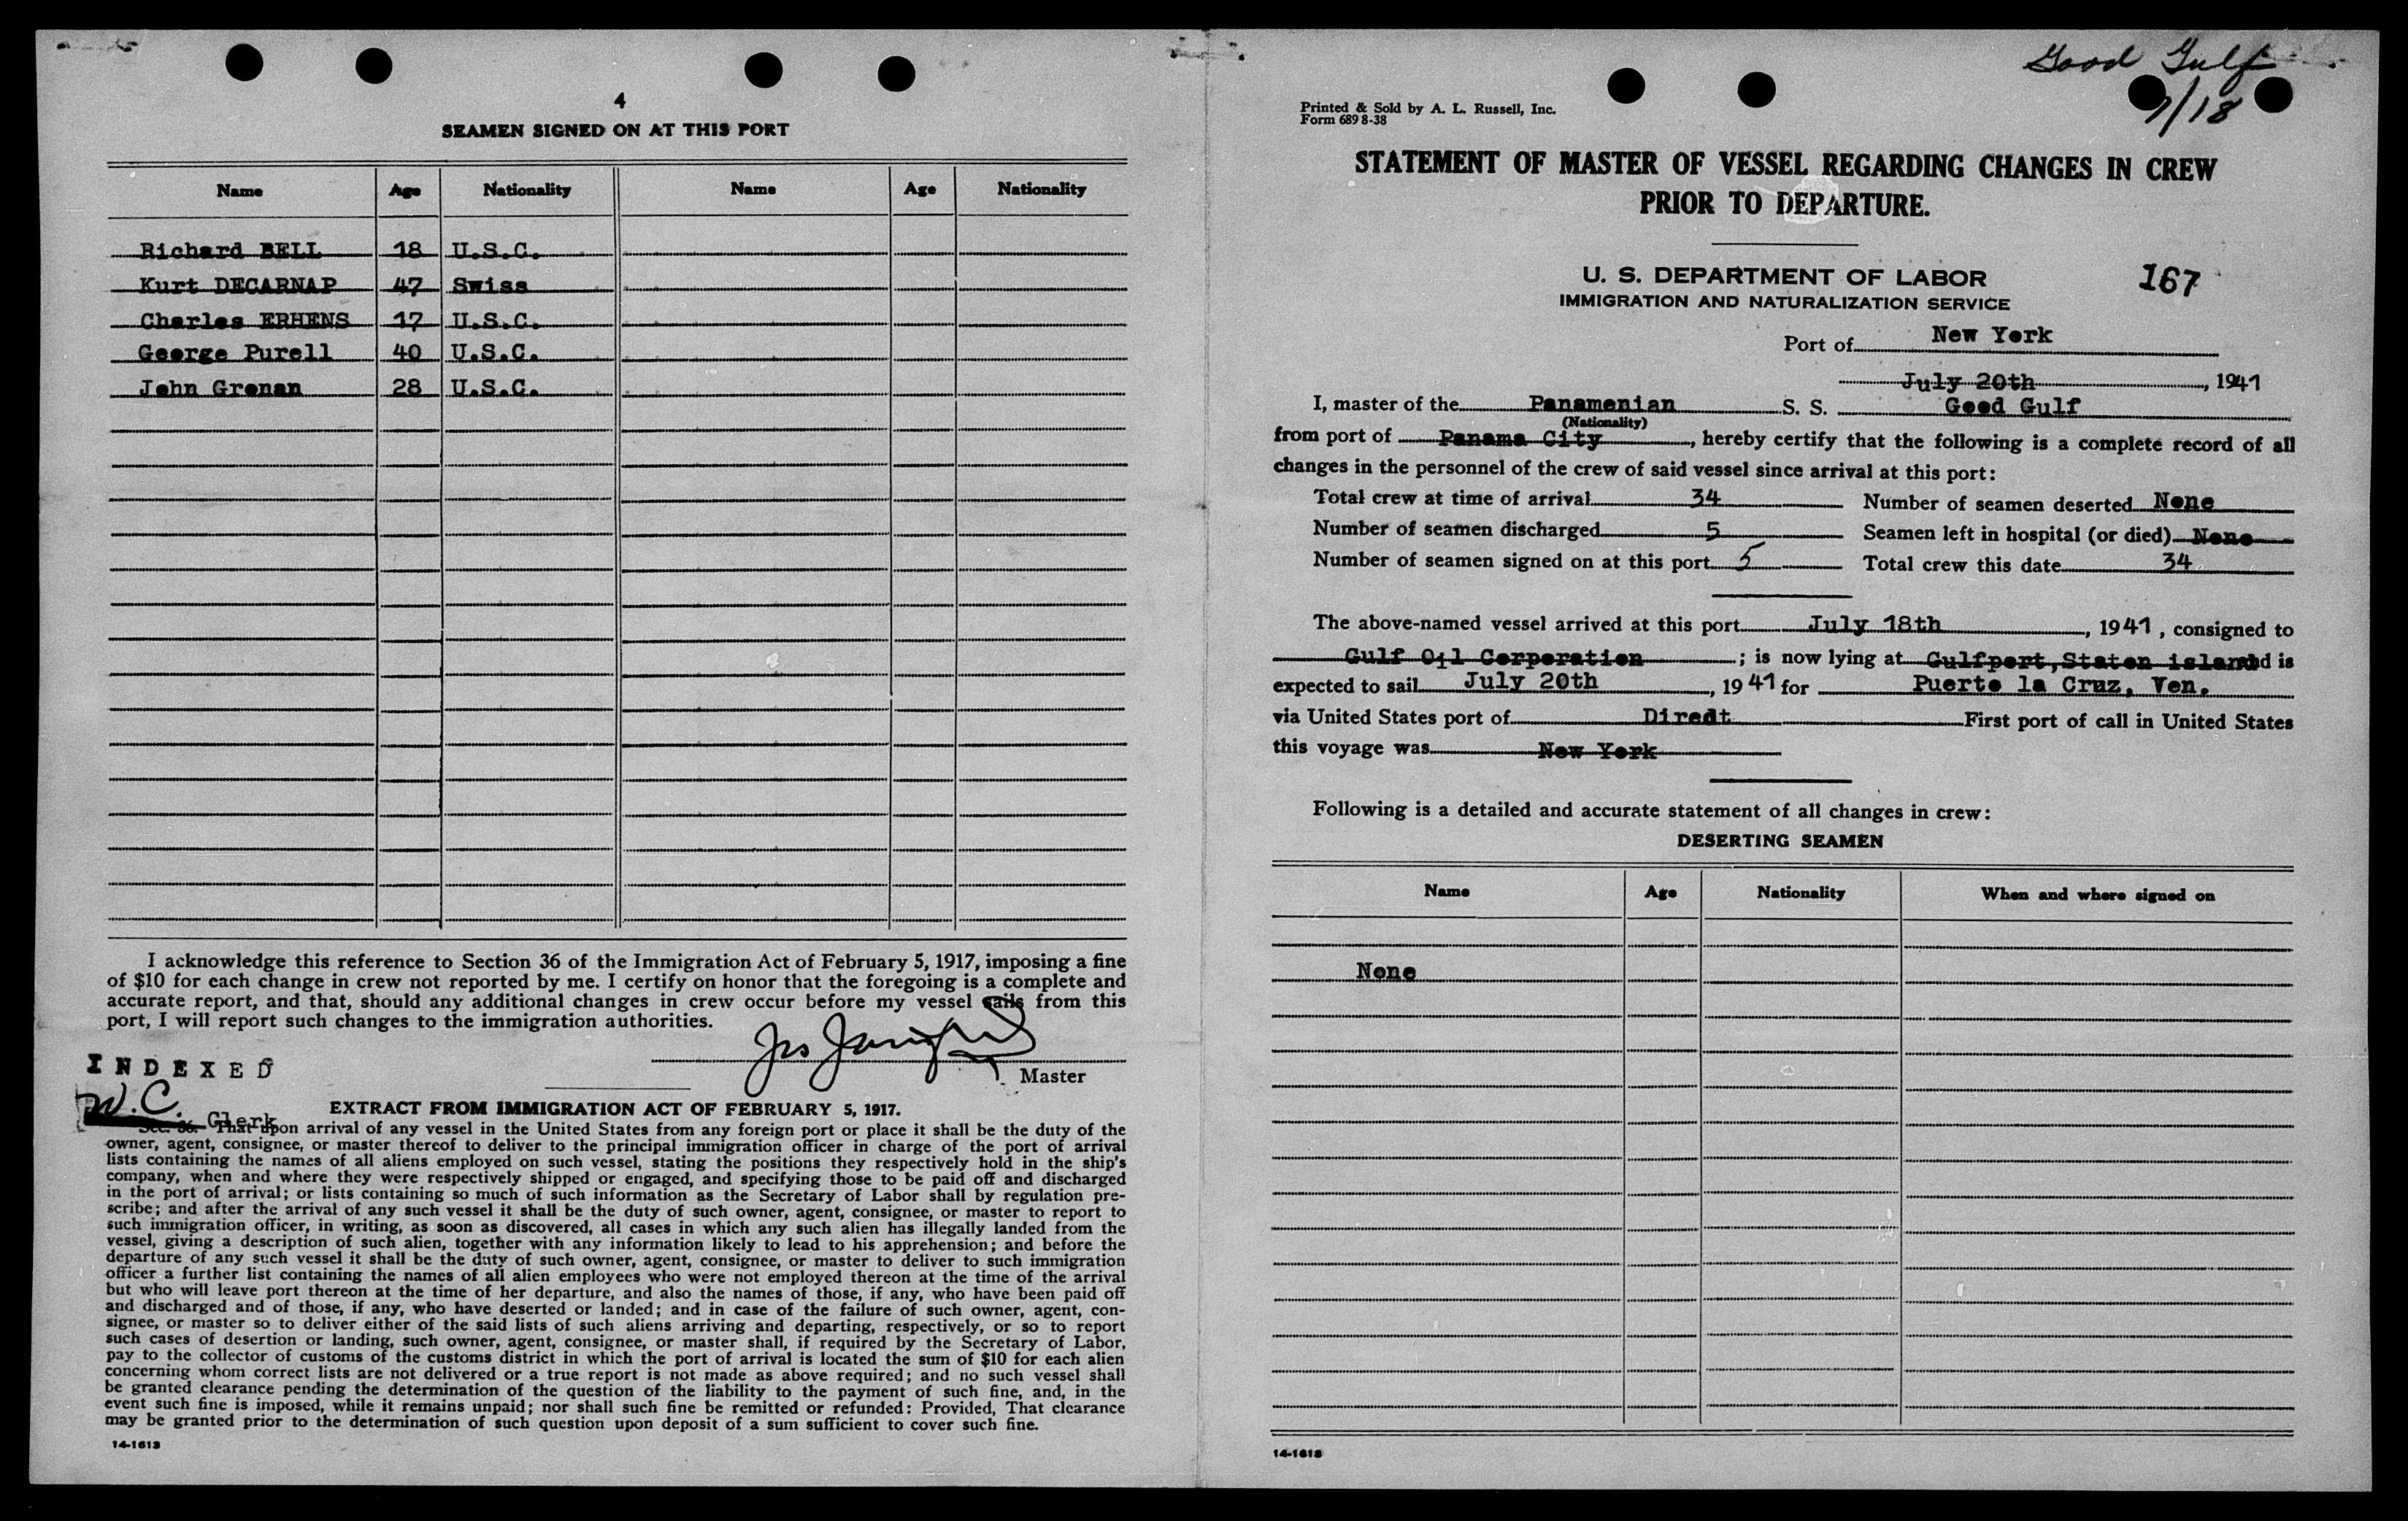 4
SEAMEN SIGNED ON AT THIS PORT
Name Age Nationality Name Age Nationality
Richard BELL 18 U.S.C.
Kurt DECARNAP 47 Swiss
Charles ERHENS 17 U.S.C.
George Purell 40 U.S.C.
John Gronan 28 U.S.C.
I acknowledge this reference to Section 36 of the Immigration Act of February 5, 1917, imposing a fine
of $10 for each change in crew not reported by me. I certify on honor that the foregoing is a complete and
accurate report, and that, should any additional changes in crew occur before my vessel sails from this
port, I will report such changes to the immigration authorities.
Master
INDEXED
W.C. Clerk
EXTRACT FROM IMMIGRATION ACT OF FEBRUARY 5, 1917.
Sec. 36. That upon arrival of any vessel in the United States from any foreign port or place it shall be the duty of the
owner, agent, consignee, or master thereof to deliver to the principal immigration officer in charge of the port of arrival
lists containing the names of all aliens employed on such vessel, stating the positions they respectively hold in the ship's
company, when and where they were respectively shipped or engaged, and specifying those to be paid off and discharged
in the port of arrival; or lists containing so much of such information as the Secretary of Labor shall by regulation pre-
scribe; and after the arrival of any such vessel it shall be the duty of such owner, agent, consignee, or master to report to
such immigration officer, in writing, as soon as discovered, all cases in which any such alien has illegally landed from the
vessel, giving a description of such alien, together with any information likely to lead to his apprehension; and before the
departure of any such vessel it shall be the duty of such owner, agent, consignee, or master to deliver to such immigration
officer a further list containing the names of all alien employees who were not employed thereon at the time of the arrival
but who will leave port thereon at the time of her departure, and also the names of those, if any, who have been paid off
and discharged and of those, if any, who have deserted or landed; and in case of the failure of such owner, agent, con-
signee, or master so to deliver either of the said lists of such aliens arriving and departing, respectively, or so to report
such cases of desertion or landing, such owner, agent, consignee, or master shall, if required by the Secretary of Labor,
pay to the collector of customs of the customs district in which the port of arrival is located the sum of $10 for each alien
concerning whom correct lists are not delivered or a true report is not made as above required; and no such vessel shall
be granted clearance pending the determination of the question of the liability to the payment of such fine, and, in the
event such fine is imposed, while it remains unpaid; nor shall such fine be remitted or refunded: Provided, That clearance
may be granted prior to the determination of such question upon deposit of a sum sufficient to cover such fine.
14-1613
Good Gulf
7/18
Printed & Sold by A. L. Russell, Inc.
Form 689 8-38
STATEMENT OF MASTER OF VESSEL REGARDING CHANGES IN CREW
PRIOR TO DEPARTURE.
U. S. DEPARTMENT OF LABOR
167
IMMIGRATION AND NATURALIZATION SERVICE
Port of New York
July 20th, 1941
I, master of the Panamenian S. S. Good Gulf
(Nationality)
from port of Panama City, hereby certify that the following is a complete record of all
changes in the personnel of the crew of said vessel since arrival at this port:
Total crew at time of arrival 34 Number of seamen deserted None
Number of seamen discharged 5 Seamen left in hospital (or died) None
Number of seamen signed on at this port 5 Total crew this date 34
The above-named vessel arrived at this port July 18th, 1941, consigned to
Gulf Oil Corporation; is now lying at Gulfport, Staten island and is
expected to sail July 20th, 1941 for Puerto la Cruz, Ven.
via United States port of Diredt First port of call in United States
this voyage was New York
Following is a detailed and accurate statement of all changes in crew:
DESERTING SEAMEN
Name Age Nationality When and where signed on
None
14-1613